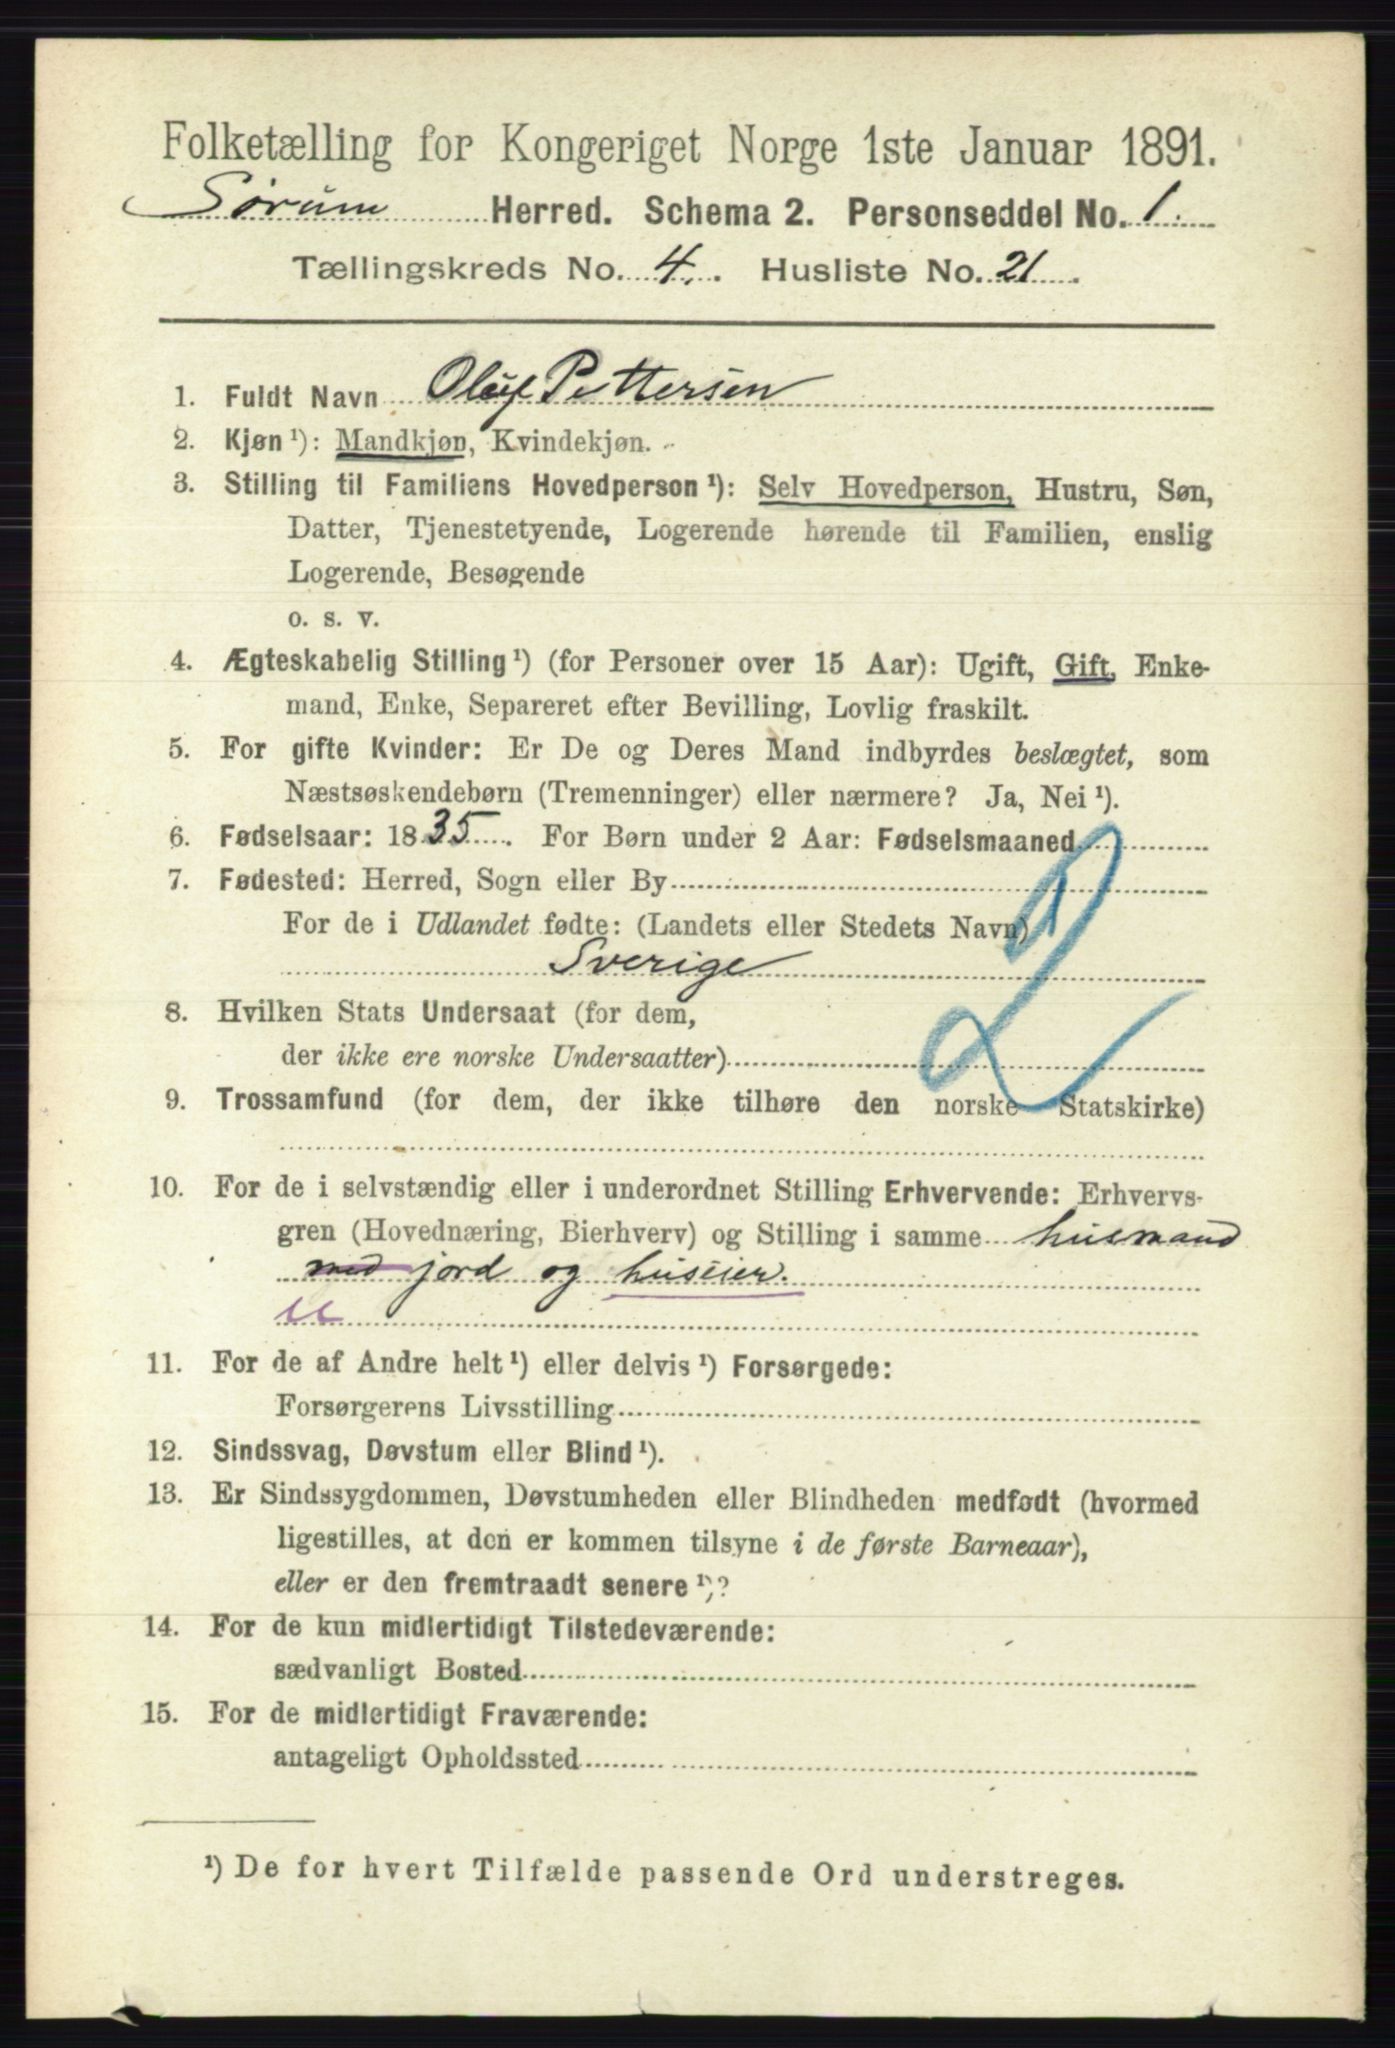 Folketælling for Kongeriget Norge 1ste Januar 1891.
Sørum Herred. Schema 2. Personseddel No. 1.
Tællingskreds No. 4. Husliste No. 21.
1. Fuldt Navn Oluf Pettersen
2. Kjøn ¹): Mandkjøn, Kvindekjøn.
3. Stilling til Familiens Hovedperson ¹): Selv Hovedperson, Hustru, Søn,
Datter, Tjenestetyende, Logerende hørende til Familien, enslig
Logerende, Besøgende
o. s. v.
4. Ægteskabelig Stilling ¹) (for Personer over 15 Aar): Ugift, Gift, Enke-
mand, Enke, Separeret efter Bevilling, Lovlig fraskilt.
5. For gifte Kvinder: Er De og Deres Mand indbyrdes beslægtet, som
Næstsøskendebørn (Tremenninger) eller nærmere? Ja, Nei ¹).
6. Fødselsaar: 1835. For Børn under 2 Aar: Fødselsmaaned
7. Fødested: Herred, Sogn eller By
For de i Udlandet fødte: (Landets eller Stedets Navn)
Sverige
2
8. Hvilken Stats Undersaat (for dem,
der ikke ere norske Undersaatter)
9. Trossamfund (for dem, der ikke tilhøre den norske Statskirke)
10. For de i selvstændig eller i underordnet Stilling Erhvervende: Erhvervs-
gren (Hovednæring, Bierhverv) og Stilling i samme husmand
med jord og huseier.
u
11. For de af Andre helt ¹) eller delvis ¹) Forsørgede:
Forsørgerens Livsstilling
12. Sindssvag, Døvstum eller Blind ¹).
13. Er Sindssygdommen, Døvstumheden eller Blindheden medfødt (hvormed
ligestilles, at den er kommen tilsyne i de første Barneaar),
eller er den fremtraadt senere ¹)?
14. For de kun midlertidigt Tilstedeværende:
sædvanligt Bosted
15. For de midlertidigt Fraværende:
antageligt Opholdssted
¹) De for hvert Tilfælde passende Ord understreges.